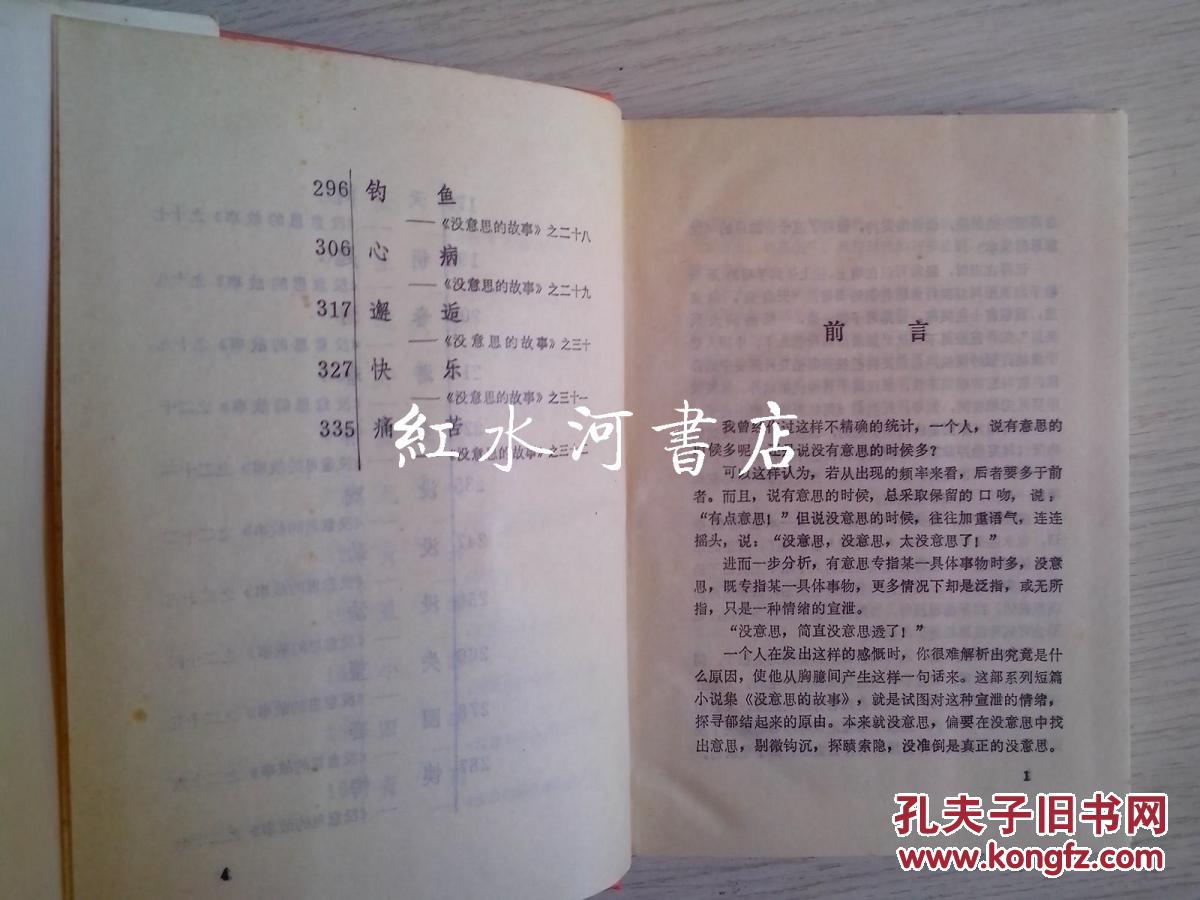 296 钓 鱼
——《没意思的故事》之二十八
306 心 病
——《没意思的故事》之二十九
317 邂 逅
——《没意思的故事》之三十
327 快 乐
——《没意思的故事》之三十一
335 痛 苦
《没意思的故事》之三十二
4
前 言
我曾经作过这样不精确的统计，一个人，说有意思的
时候多呢，还是说没有意思的时候多？
可以这样认为，若从出现的频率来看，后者要多于前
者。而且，说有意思的时候，总采取保留的口吻，说：
“有点意思！”但说没意思的时候，往往加重语气，连连
摇头，说：“没意思，没意思，太没意思了！”
进而一步分析，有意思专指某一具体事物时多，没意
思，既专指某一具体事物，更多情况下却是泛指，或无所
指，只是一种情绪的宣泄。
“没意思，简直没意思透了！”
一个人在发出这样的感慨时，你很难解析出究竟是什
么原因，使他从胸臆间产生这样一句话来。这部系列短篇
小说集《没意思的故事》，就是试图对这种宣泄的情绪，
探寻郁结起来的原由。本来就没意思，偏要在没意思中找
出意思，剔微钩沉，探赜索隐，没准倒是真正的没意思。
1
紅水河書店
孔夫子旧书网
www.kongfz.com